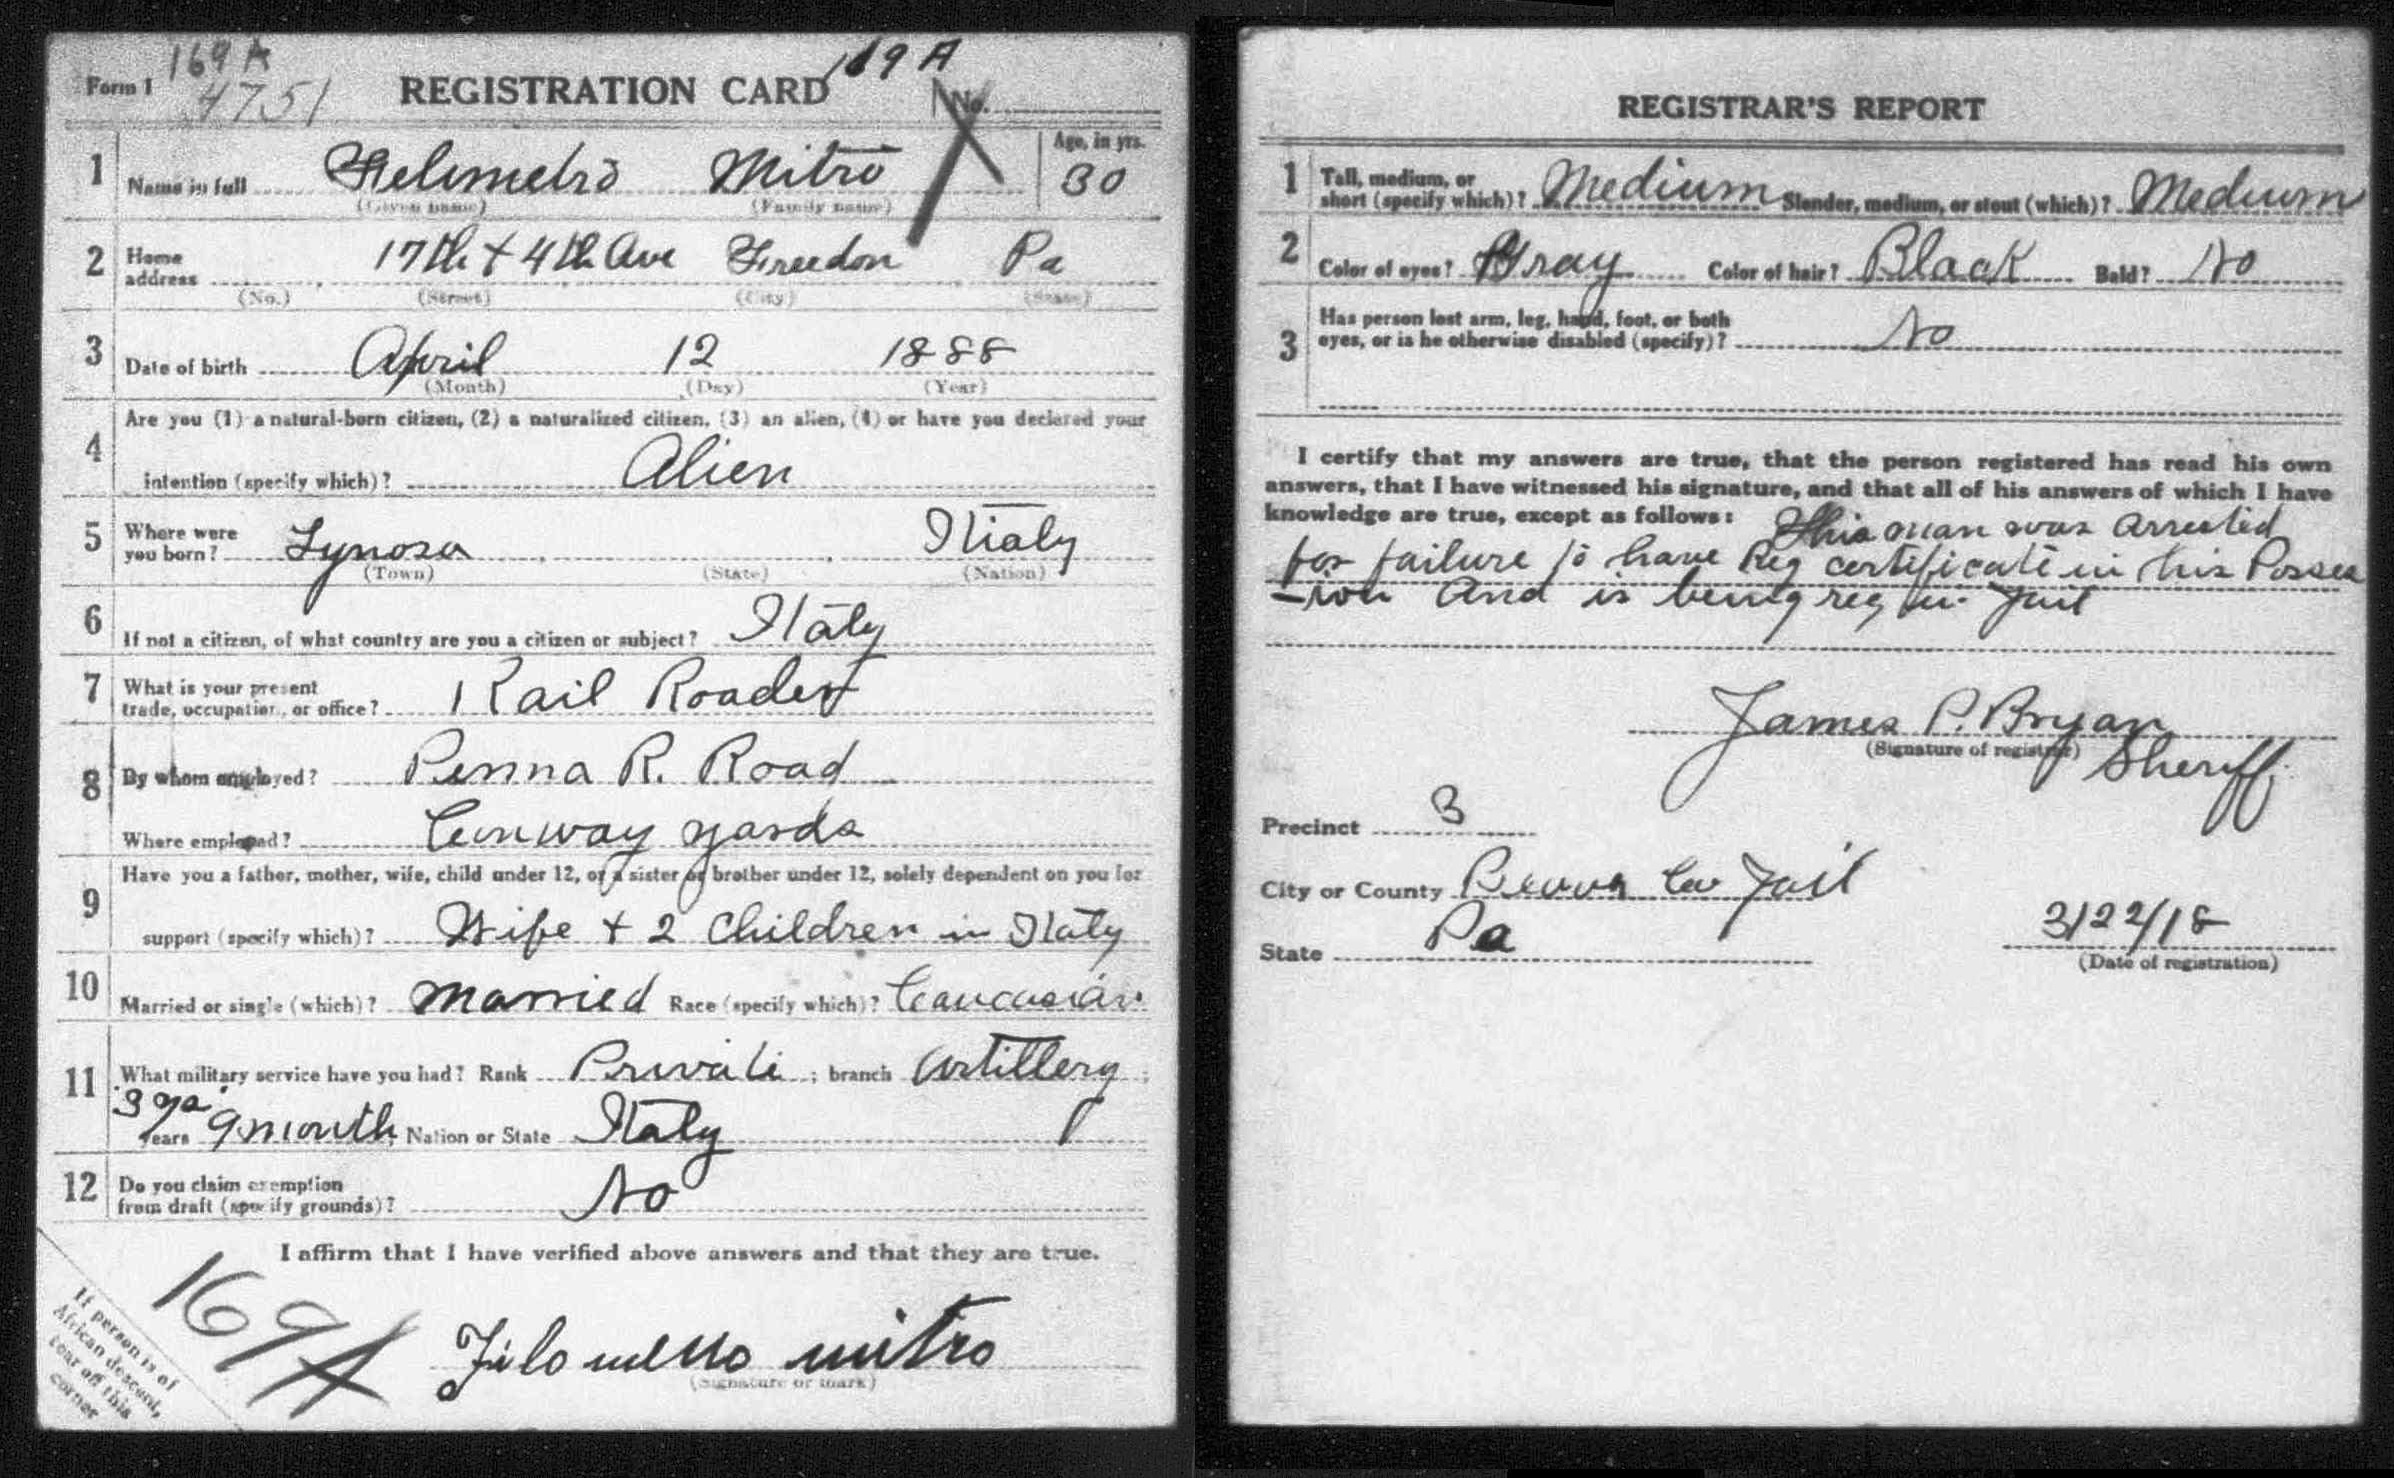 169 A
Form 1 4751 REGISTRATION CARD 169 A No.
1 Name in full Felemetro Mitro Age, in yrs. 30
(Given name) (Family name)
2 Home address 17th + 4th Ave Freedon Pa
(No.) (Street) (City) (State)
3 Date of birth April 12 1888
(Month) (Day) (Year)
4 Are you (1) a natural-born citizen, (2) a naturalized citizen, (3) an alien, (4) or have you declared your
intention (specify which)? Alien
5 Where were you born? Lynosa Itialy
(Town) (State) (Nation)
6 If not a citizen, of what country are you a citizen or subject? Italy
7 What is your present trade, occupation, or office? Rail Roader
8 By whom employed? Penna R. Road
Where employed? Conway yards
9 Have you a father, mother, wife, child under 12, or a sister or brother under 12, solely dependent on you for
support (specify which)? Wife + 2 Children in Italy
10 Married or single (which)? Married Race (specify which)? Caucasian
11 What military service have you had? Rank Private ; branch Artillery ;
3 yrs years 9 month Nation or State Italy
12 Do you claim exemption from draft (specify grounds)? No
I affirm that I have verified above answers and that they are true.
169A
Filomello mitro
(Signature or mark)
If person is of
African descent,
tear off this
corner
REGISTRAR'S REPORT
1 Tall, medium, or short (specify which)? Medium Slender, medium, or stout (which)? Medium
2 Color of eyes? Gray Color of hair? Black Bald? No
3 Has person lost arm, leg, hand, foot, or both
eyes, or is he otherwise disabled (specify)? No
I certify that my answers are true, that the person registered has read his own
answers, that I have witnessed his signature, and that all of his answers of which I have
knowledge are true, except as follows: This man was arrested
for failure to have Reg certificate in his Posses
-ion And is being reg in Jail
James P. Bryan
(Signature of registrar) Sheriff
Precinct 3
City or County Beaver Co Jail
State Pa 3/22/18
(Date of registration)